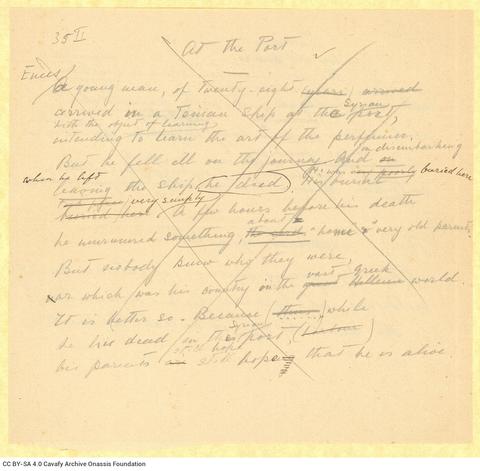 35 II
At the Port
Emes
A young man, of twenty-eight (years) arrived
arrived in a Tenian ship at the Syrian port,
with the object of learning
intending to learn the art of the perfumer.
But he fell ill on the journey. And on disembarking
when he left He was very poorly buried here
leaving the ship, he died. His burial
very simply
buried here. A few hours before his death
he murmured something, about "home" & "very old parents".
But nobody knew who they were,
or which was his country in the great vast Greek Hellenic world.
It is better so. Because (thus) while
he lies dead in this Syrian port, (harbour)
still hope
his parents still hope that he is alive.
CC BY-SA 4.0 Cavafy Archive Onassis Foundation